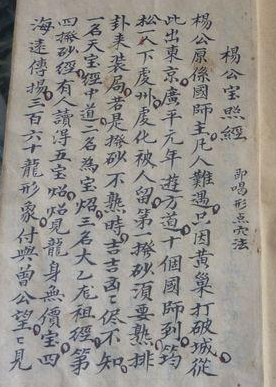 楊公宝照經
即唱形点穴法
楊公原係國師主凡人難遇只因黄巢打破城從
此出東京廣平元年遊方道十個國師到筠
松一人下處州處化被人留第一撥砂須要熟排
卦来装局若是撥砂不熟時吉吉凶凶侭不知
一名天宝經中道二名為宝炤三名大乙尨祖經第
四撥砂經有人讀得五宝炤炤見龍身無價宝四
海迷傳揚三百六十龍形象付與曾公望望見